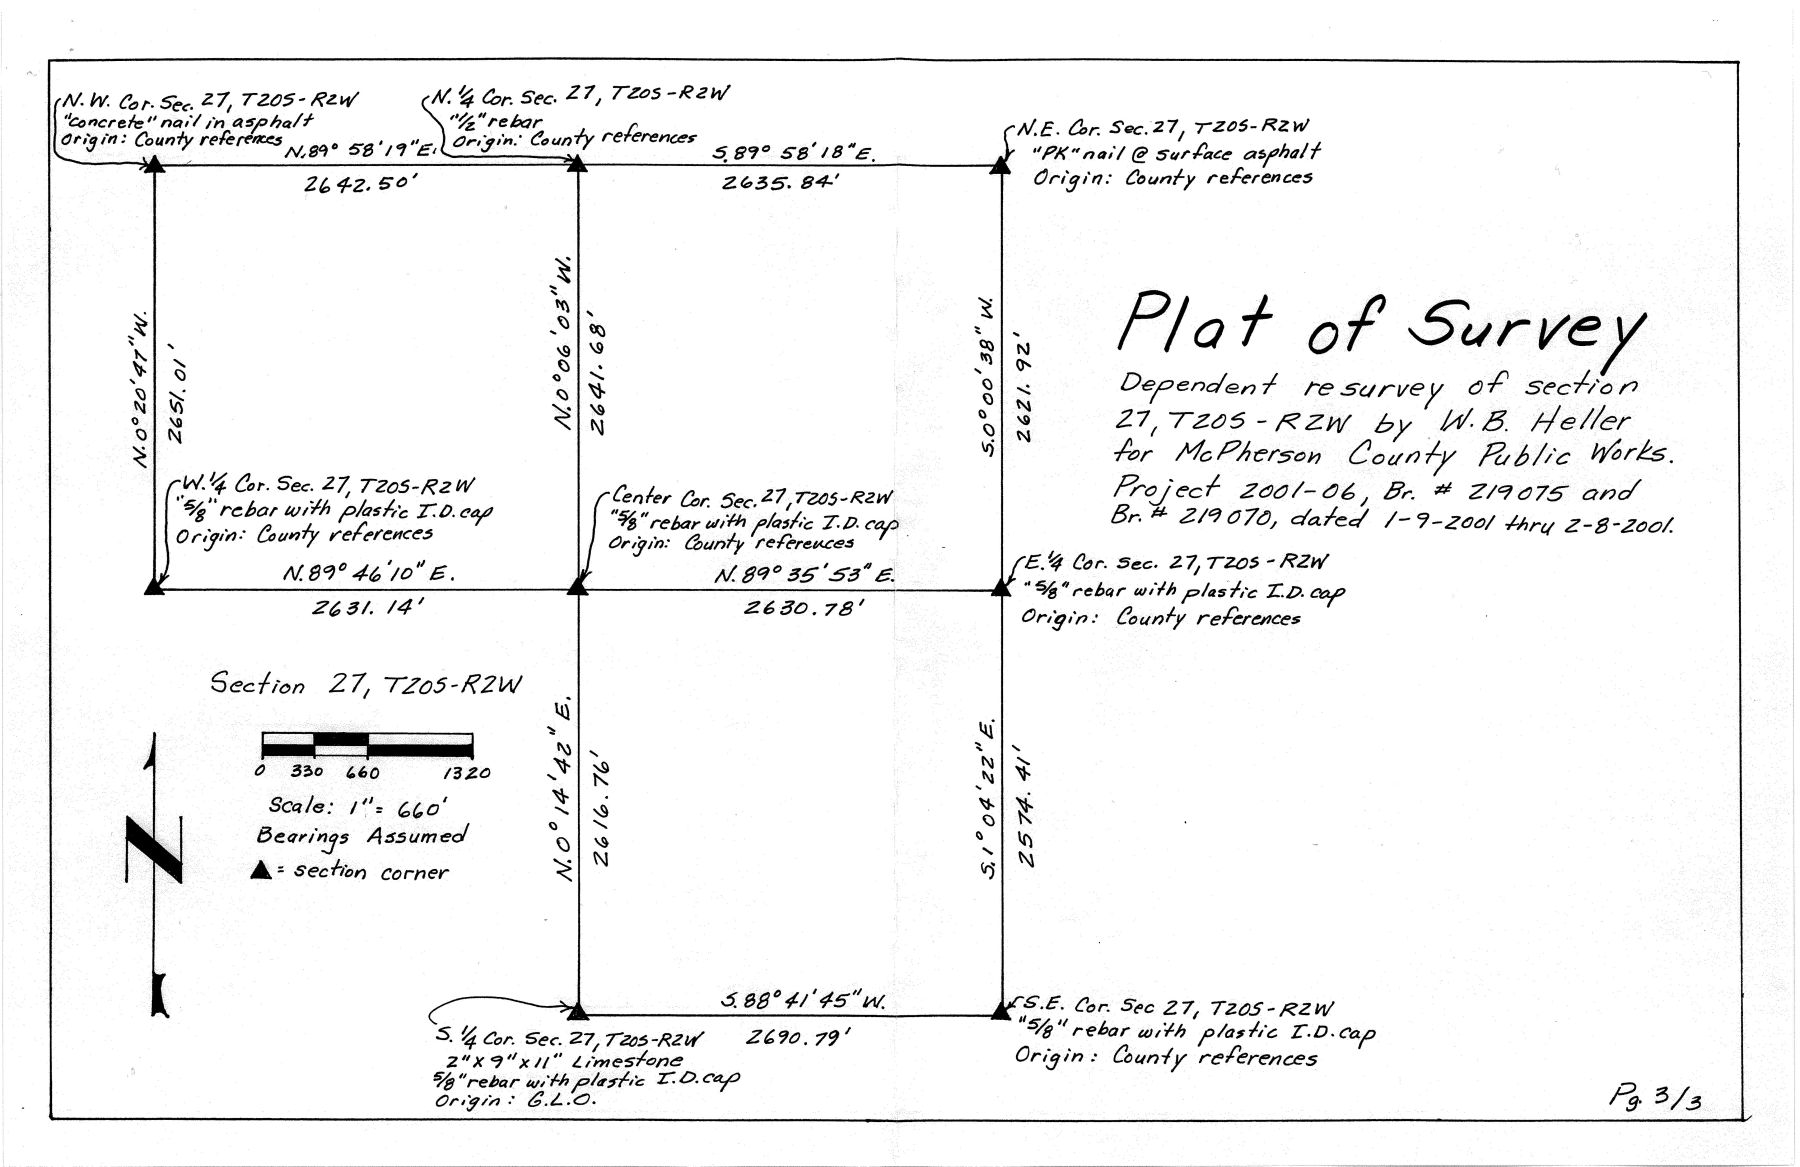 N.W. Cor. Sec. 27, T20S-R2W
"concrete" nail in asphalt
Origin: County references
N.89° 58' 19"E.
2642.50'
N.1/4 Cor. Sec. 27, T20S-R2W
"1/2" rebar
Origin: County references
S.89° 58' 18"E.
2635.84'
N.E. Cor. Sec. 27, T20S-R2W
"PK" nail @ surface asphalt
Origin: County references
N.0° 20' 47" W.
2651.01'
N.0° 06' 03" W.
2641.68'
S.0° 00' 38" W.
2621.92'
Plat of Survey
Dependent resurvey of section
27, T20S-R2W by W.B. Heller
for McPherson County Public Works.
Project 2001-06, Br. # 219075 and
Br. # 219070, dated 1-9-2001 thru 2-8-2001.
W.1/4 Cor. Sec. 27, T20S-R2W
"5/8" rebar with plastic I.D. cap
Origin: County references
N.89° 46' 10" E.
2631.14'
Center Cor. Sec. 27, T20S-R2W
"5/8" rebar with plastic I.D. cap
Origin: County references
N.89° 35' 53" E.
2630.78'
E.1/4 Cor. Sec. 27, T20S-R2W
"5/8" rebar with plastic I.D. cap
Origin: County references
Section 27, T20S-R2W
0 330 660 1320
Scale: 1" = 660'
Bearings Assumed
▲ = section corner
N
N.0° 14' 42" E.
2616.76'
S.1° 04' 22" E.
2574.41'
S.88° 41' 45" W.
2690.79'
S. 1/4 Cor. Sec. 27, T20S-R2W
2" x 9" x 11" Limestone
5/8" rebar with plastic I.D. cap
Origin: G.L.O.
S.E. Cor. Sec 27, T20S-R2W
"5/8" rebar with plastic I.D. cap
Origin: County references
Pg. 3/3